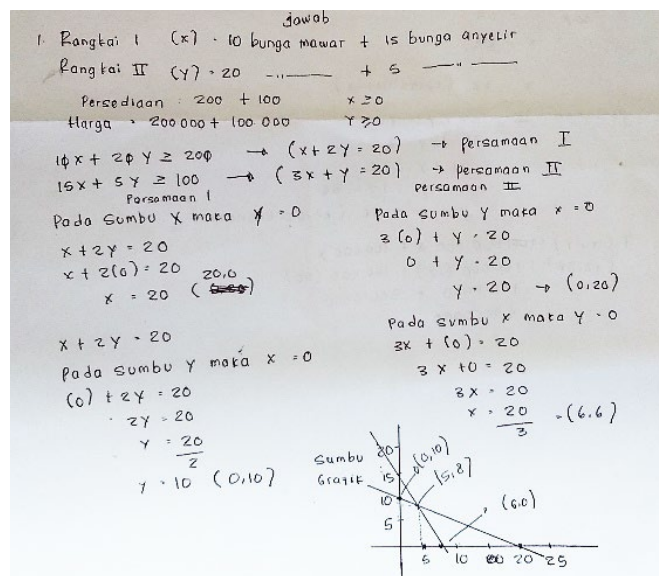 jawab
1. Rangkai I (x) = 10 bunga mawar + 15 bunga anyelir
Rangkai II (y) = 20 —"— + 5 —"—
Persediaan : 200 + 100 x ≥ 0
Harga = 200 000 + 100.000 Y ≥ 0
10x + 20 Y ≥ 200 → (x + 2Y = 20) → persamaan I
15x + 5 Y ≥ 100 → (3x + Y = 20) → persamaan II
Persamaan I
Pada Sumbu X maka Y = 0
x + 2Y = 20
x + 2(0) = 20
x = 20 (20,0)
x + 2Y = 20
Pada Sumbu Y maka x = 0
(0) + 2Y = 20
2Y = 20
Y = 20
2
Y = 10 (0,10)
persamaan II
Pada Sumbu Y maka x = 0
3 (0) + Y = 20
0 + Y = 20
Y = 20 → (0,20)
Pada Sumbu x maka Y = 0
3x + (0) = 20
3x + 0 = 20
3x = 20
x = 20 = (6.6)
3
Sumbu
Grafik
20
(0,10)
15
(5,8)
10
(6.0)
5
5 10 20 25